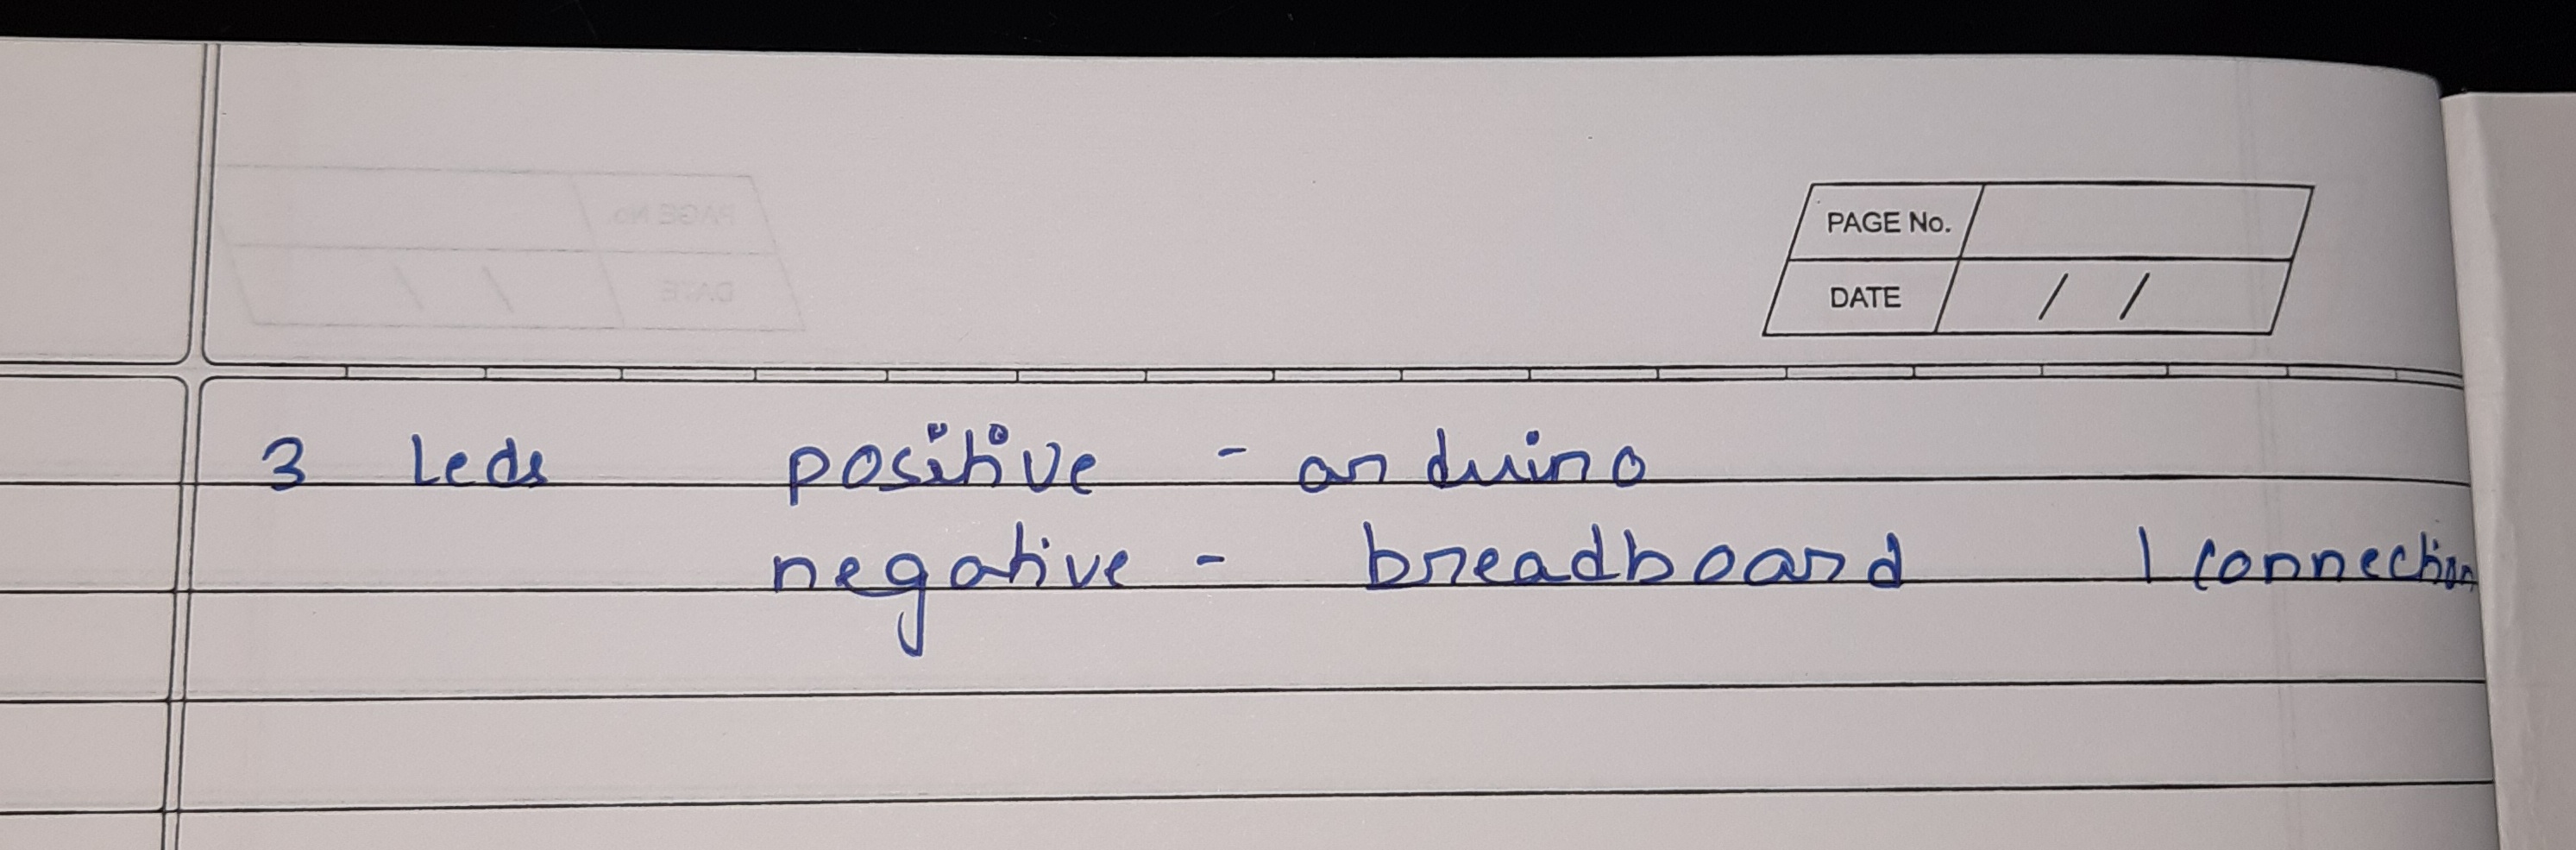 PAGE No.
DATE / /
3 Leds positive - arduino
negative - breadboard 1 connection